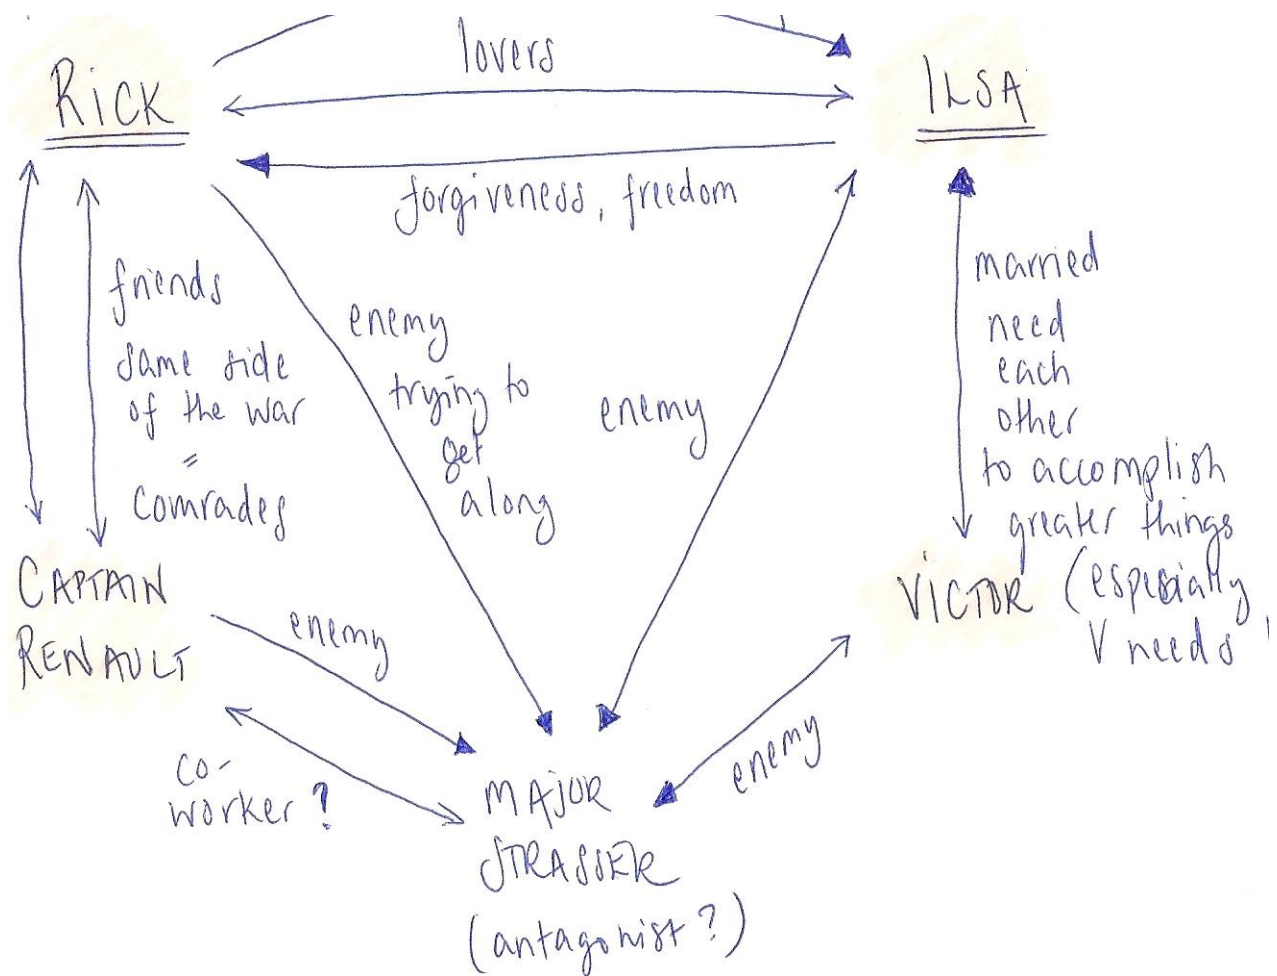 lovers
RICK
ILSA
forgiveness, freedom
friends
same side
of the war
=
comrades
enemy
trying to
get
along
enemy
married
need
each
other
to accomplish
greater things
(especially
V needs
CAPTAIN
RENAULT
VICTOR
enemy
co-
worker?
enemy
MAJOR
STRASSER
(antagonist?)